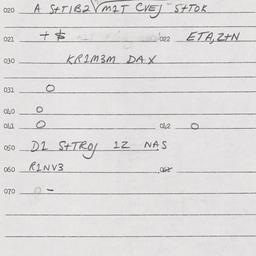 020 A S+TIB2 √m1T CVEJ S+TOK
021 +$ 022 ETA,Z+N
030 KR1M3M DAX
031 O
040 O
041 O 042 O
050 D1 S+TROJ 1Z NAS
060 R1NV3 062
070 -